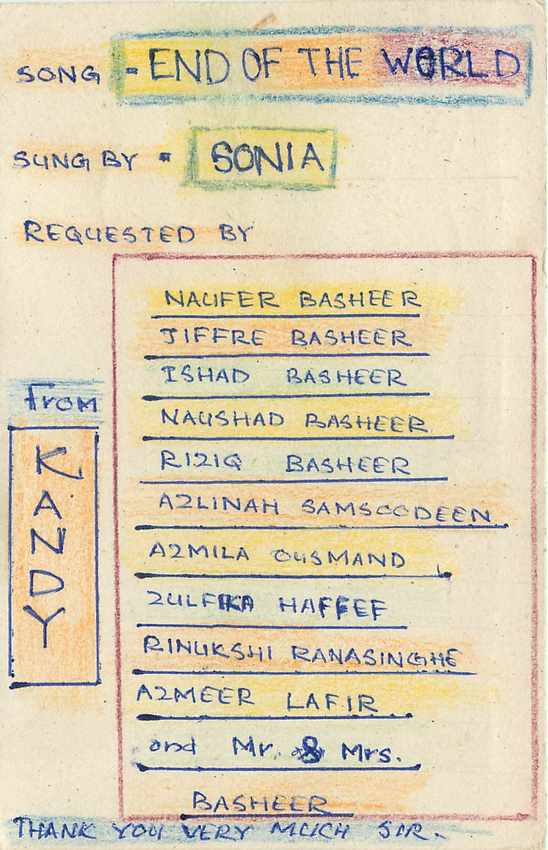 SONG = END OF THE WORLD
SUNG BY = SONIA
REQUESTED BY
NAUFER BASHEER
JIFFRE BASHEER
ISHAD BASHEER
From
NAUSHAD BASHEER
RIZIQ BASHEER
KANDY
AZLINAH SAMSOODEEN
AZMILA OUSMAND
ZULFIKA HAFFEF
RINUKSHI RANASINGHE
AZMEER LAFIR
and Mr. & Mrs.
BASHEER
THANK YOU VERY MUCH SIR.